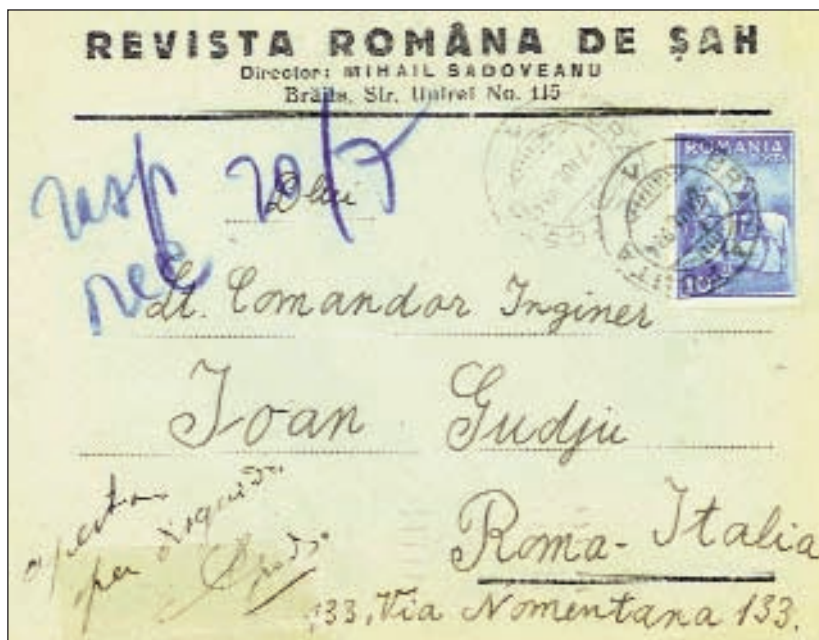 REVISTA ROMÂNA DE ȘAH
Director: MIHAIL SADOVEANU
Brăila, Str. Unirei No. 115
ROMANIA
POSTA
rasp 20/7
Dlui
Lt. Comandor Inginer
Ioan Gudju
Roma - Italia
133, Via Nomentana 133.